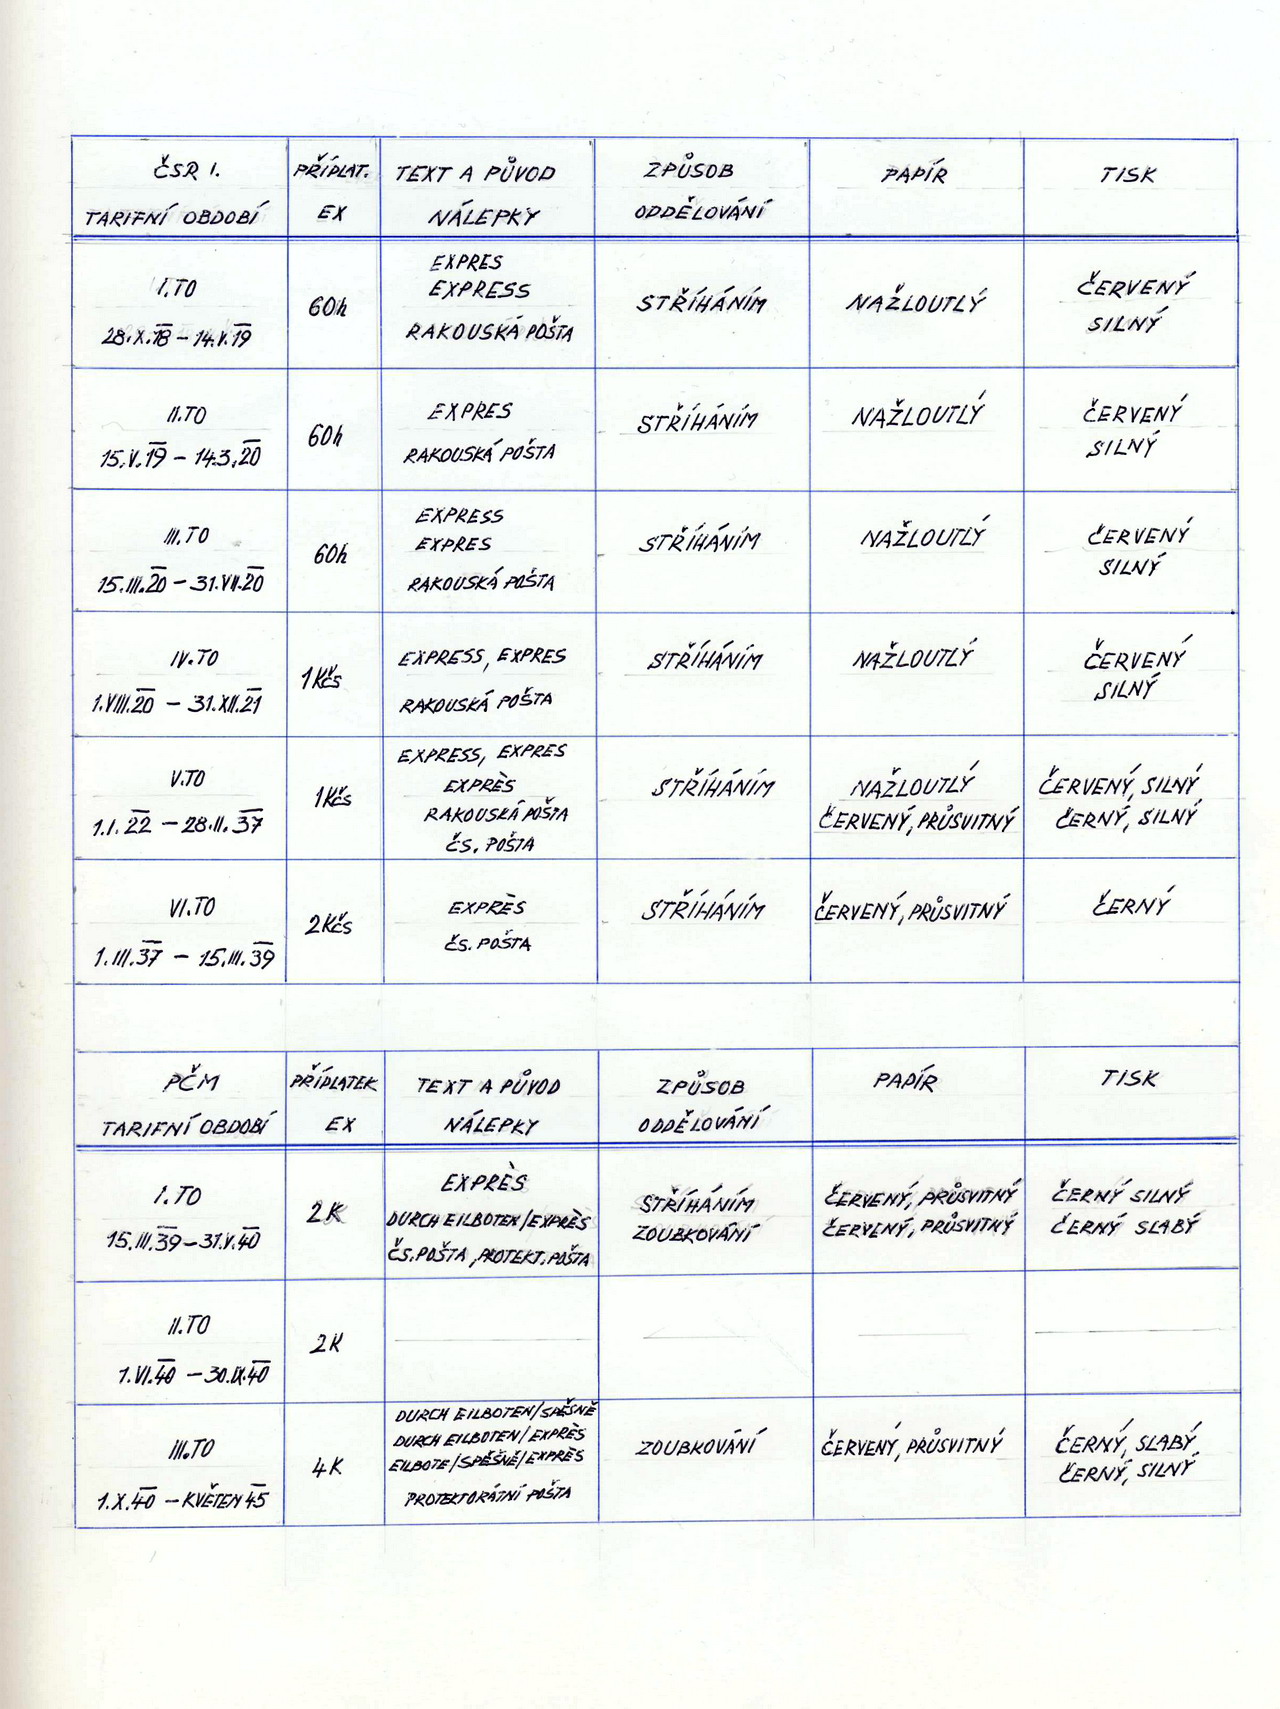 ČSR I. PŘÍPLAT. TEXT A PŮVOD ZPŮSOB PAPÍR TISK
TARIFNÍ OBDOBÍ EX NÁLEPKY ODDĚLOVÁNÍ
EXPRES
I.TO EXPRESS ČERVENÝ
60h STŘÍHÁNÍM NAŽLOUTLÝ
28.X.18 – 14.V.19 RAKOUSKÁ POŠTA SILNÝ
II.TO EXPRES STŘÍHÁNÍM NAŽLOUTLÝ ČERVENÝ
60h
15.V.19 – 14.3.20 RAKOUSKÁ POŠTA SILNÝ
EXPRESS
III.TO EXPRES STŘÍHÁNÍM NAŽLOUTLÝ ČERVENÝ
60h SILNÝ
15.III.20 – 31.VII.20 RAKOUSKÁ POŠTA
IV.TO EXPRESS, EXPRES STŘÍHÁNÍM NAŽLOUTLÝ ČERVENÝ
1Kčs SILNÝ
1.VIII.20 – 31.XII.21 RAKOUSKÁ POŠTA
EXPRESS, EXPRES
V.TO EXPRÈS STŘÍHÁNÍM NAŽLOUTLÝ ČERVENÝ, SILNÝ
1Kčs
1.I.22 – 28.II.37 RAKOUSKÁ POŠTA ČERVENÝ, PRŮSVITNÝ ČERNÝ, SILNÝ
ČS. POŠTA
VI.TO EXPRÈS STŘÍHÁNÍM ČERVENÝ, PRŮSVITNÝ ČERNÝ
2Kčs
1.III.37 – 15.III.39 ČS. POŠTA
PČM PŘÍPLATEK TEXT A PŮVOD ZPŮSOB PAPÍR TISK
TARIFNÍ OBDOBÍ EX NÁLEPKY ODDĚLOVÁNÍ
I.TO EXPRÈS STŘÍHÁNÍM ČERVENÝ, PRŮSVITNÝ ČERNÝ SILNÝ
2K DURCH EILBOTEN/EXPRÈS ZOUBKOVÁNÍ ČERVENÝ, PRŮSVITNÝ ČERNÝ SLABÝ
15.III.39 – 31.V.40 ČS.POŠTA, PROTEKT. POŠTA
II.TO
2K
1.VI.40 – 30.IX.40
DURCH EILBOTEN/SPĚŠNĚ
DURCH EILBOTEN/EXPRÈS
III.TO EILBOTE/SPĚŠNĚ/EXPRÈS ZOUBKOVÁNÍ ČERVENÝ, PRŮSVITNÝ ČERNÝ, SLABÝ
4K ČERNÝ, SILNÝ
1.X.40 – KVĚTEN 45 PROTEKTORÁTNÍ POŠTA